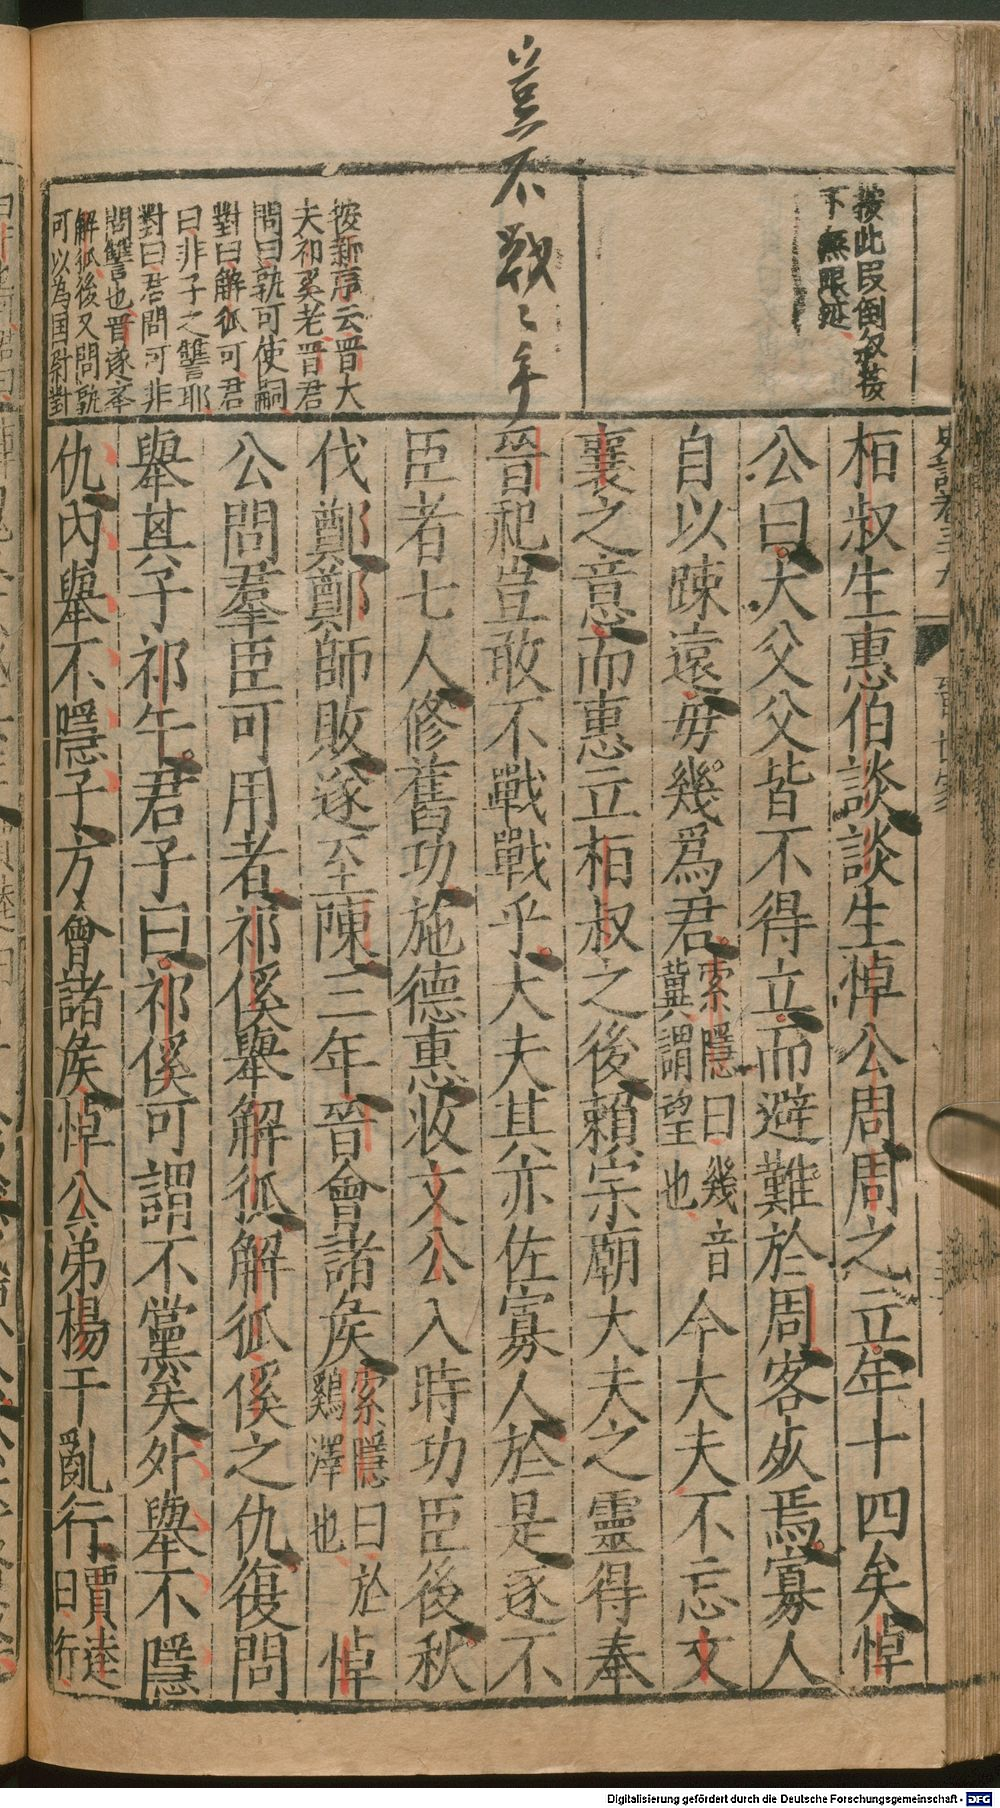 豈不戰戰乎
按此段倒叙後
下無限延
按新序云晋大
夫祁奚老晋君
問曰孰可使嗣
對曰解狐可君
曰非子之讐耶
對曰君問可非
問讐也晋遂奉
解狐後又問孰
可以為国尉對
晉世家
桓叔生惠伯談談生悼公周周之立年十四矣悼
公曰大父父皆不得立而避難於周客死焉寡人
自以踈遠毋幾爲君索隱曰幾音
冀謂望也今大夫不忘文
襄之意而惠立桓叔之後賴宗廟大夫之靈得奉
晉祀豈敢不戰戰乎大夫其亦佐寡人於是逐不
臣者七人修舊功施德惠收文公入時功臣後秋
伐鄭鄭師敗遂至陳三年晉會諸侯索隱曰於
鷄澤也悼
公問羣臣可用者祁傒舉解狐解狐傒之仇復問
舉其子祁午君子曰祁傒可謂不黨矣外舉不隱
仇內舉不隱子方會諸侯悼公弟楊干亂行賈逵
曰行
Digitalisierung gefördert durch die Deutsche Forschungsgemeinschaft - DFG